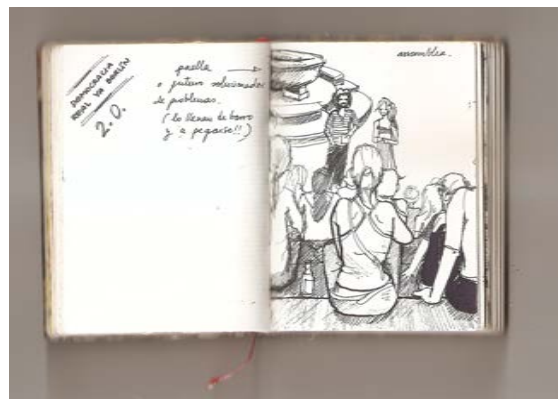 DEMOCRACIA
REAL YA BERLÍN
2.0.
paella
o futuro solucionador
de problemas.
(lo llenan de barro
y a pegarse!!)
asamblea.